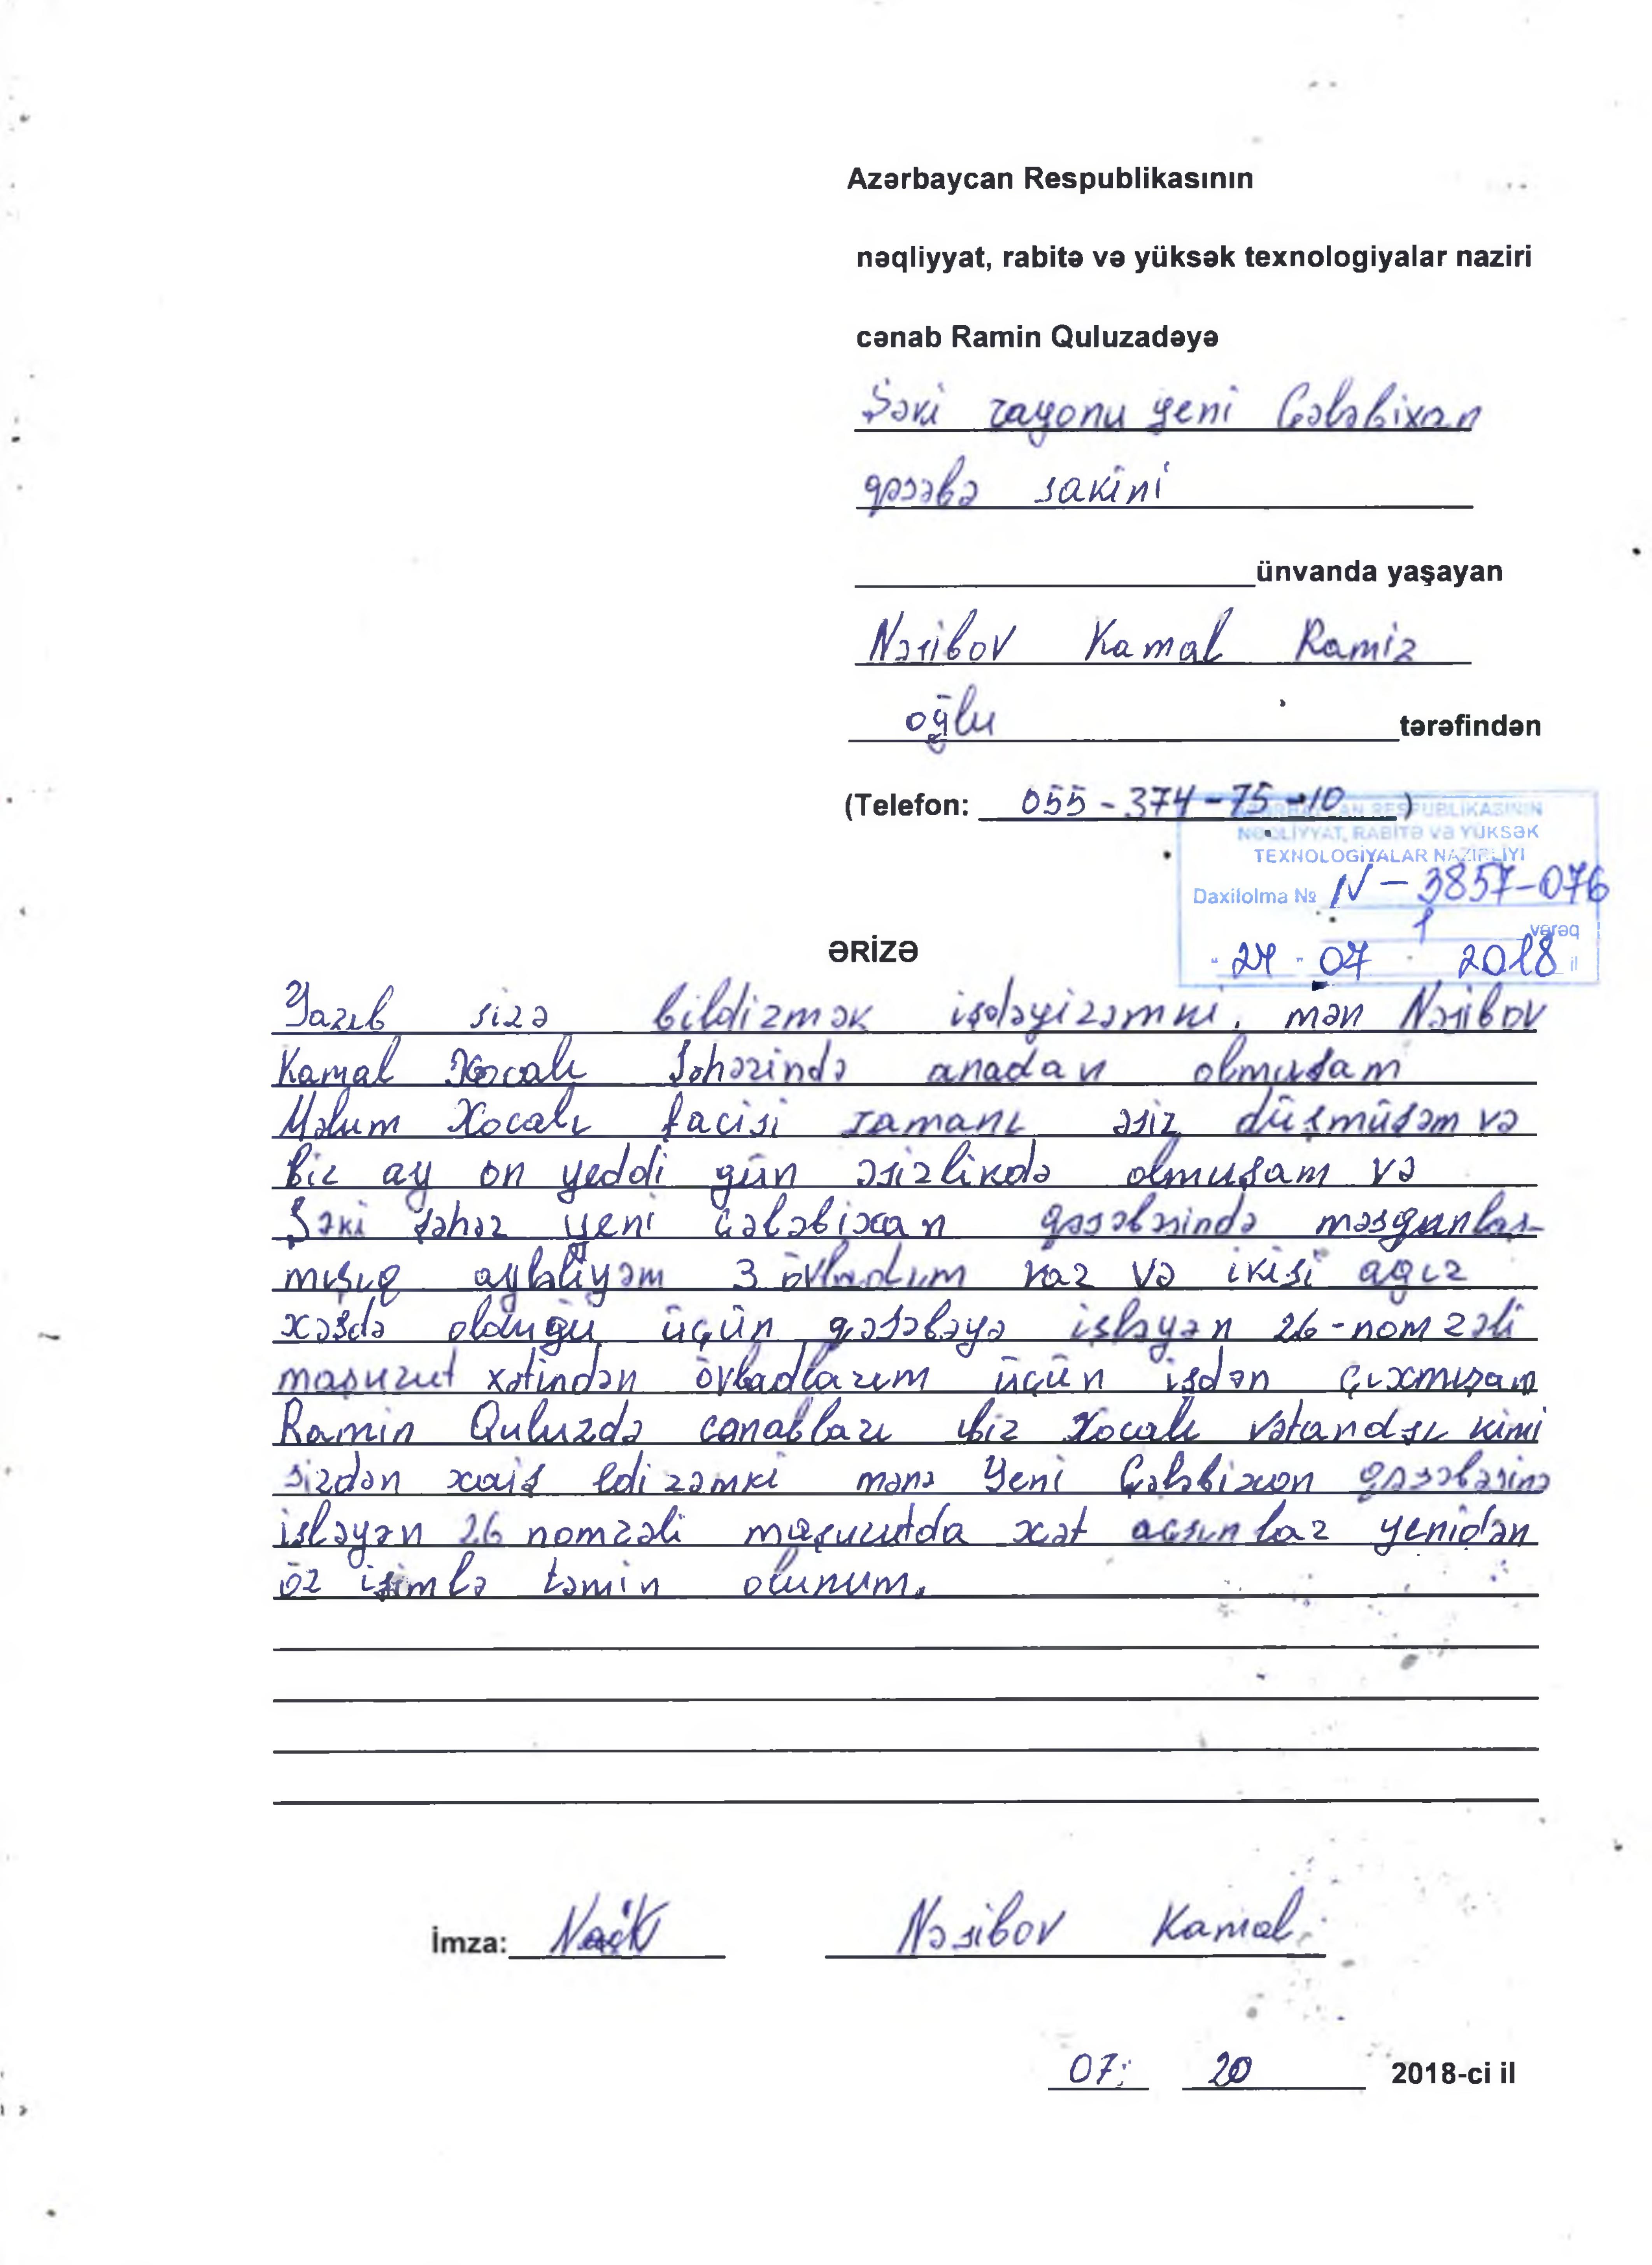 Azərbaycan Respublikasının
nəqliyyat, rabitə və yüksək texnologiyalar naziri
cənab Ramin Quluzadəyə
Şəki rayonu yeni Çələbixan
qəsəbə sakini
ünvanda yaşayan
Nəsibov Kamal Ramiz
oğlu tərəfindən
(Telefon: 055-374-75-10 )
AZƏRBAYCAN RESPUBLİKASININ
NƏQLİYYAT, RABİTƏ VƏ YÜKSƏK
TEXNOLOGİYALAR NAZİRLİYİ
Daxilolma № N-3857-076
1 vərəq
"24" 07 2018 il
ƏRİZƏ
Yazıb sizə bildirmək işdəyirəmki, mən Nəsibov
Kamal Xocalı Şəhərində anadan olmuşam
Məlum Xocalı facisi zamanı əsir düşmüşəm və
bir ay on yeddi gün əsirlikdə olmuşam və
Şəki şəhər yeni Çələbixan qəsəbəsində məsgunlaş-
mışıq ayləliyəm 3 övladım var və ikisi ağır
xəsdə olduğu üçün qəsəbəyə işləyən 26-nomrəli
maşurut xətindən övladlarım üçün işdən çıxmışam
Ramin Quluzdə cənabları bir Xocalı vətandşı kimi
sizdən xaiş edirəmki mənə Yeni Çələbixan qəsəbəsinə
işləyən 26 nomrəli maşurutda xət açsınlar yenidən
öz işimlə təmin olunum.
İmza: Nəsibov Kamal
07 20 2018-ci il